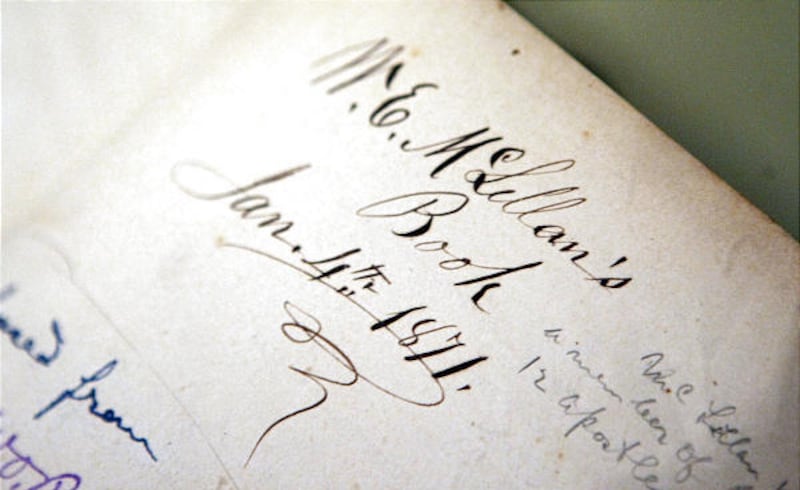 W. E. McLellan's
Book
Jan. 4th 1871.
McLellan
a member of
12 apostles
from